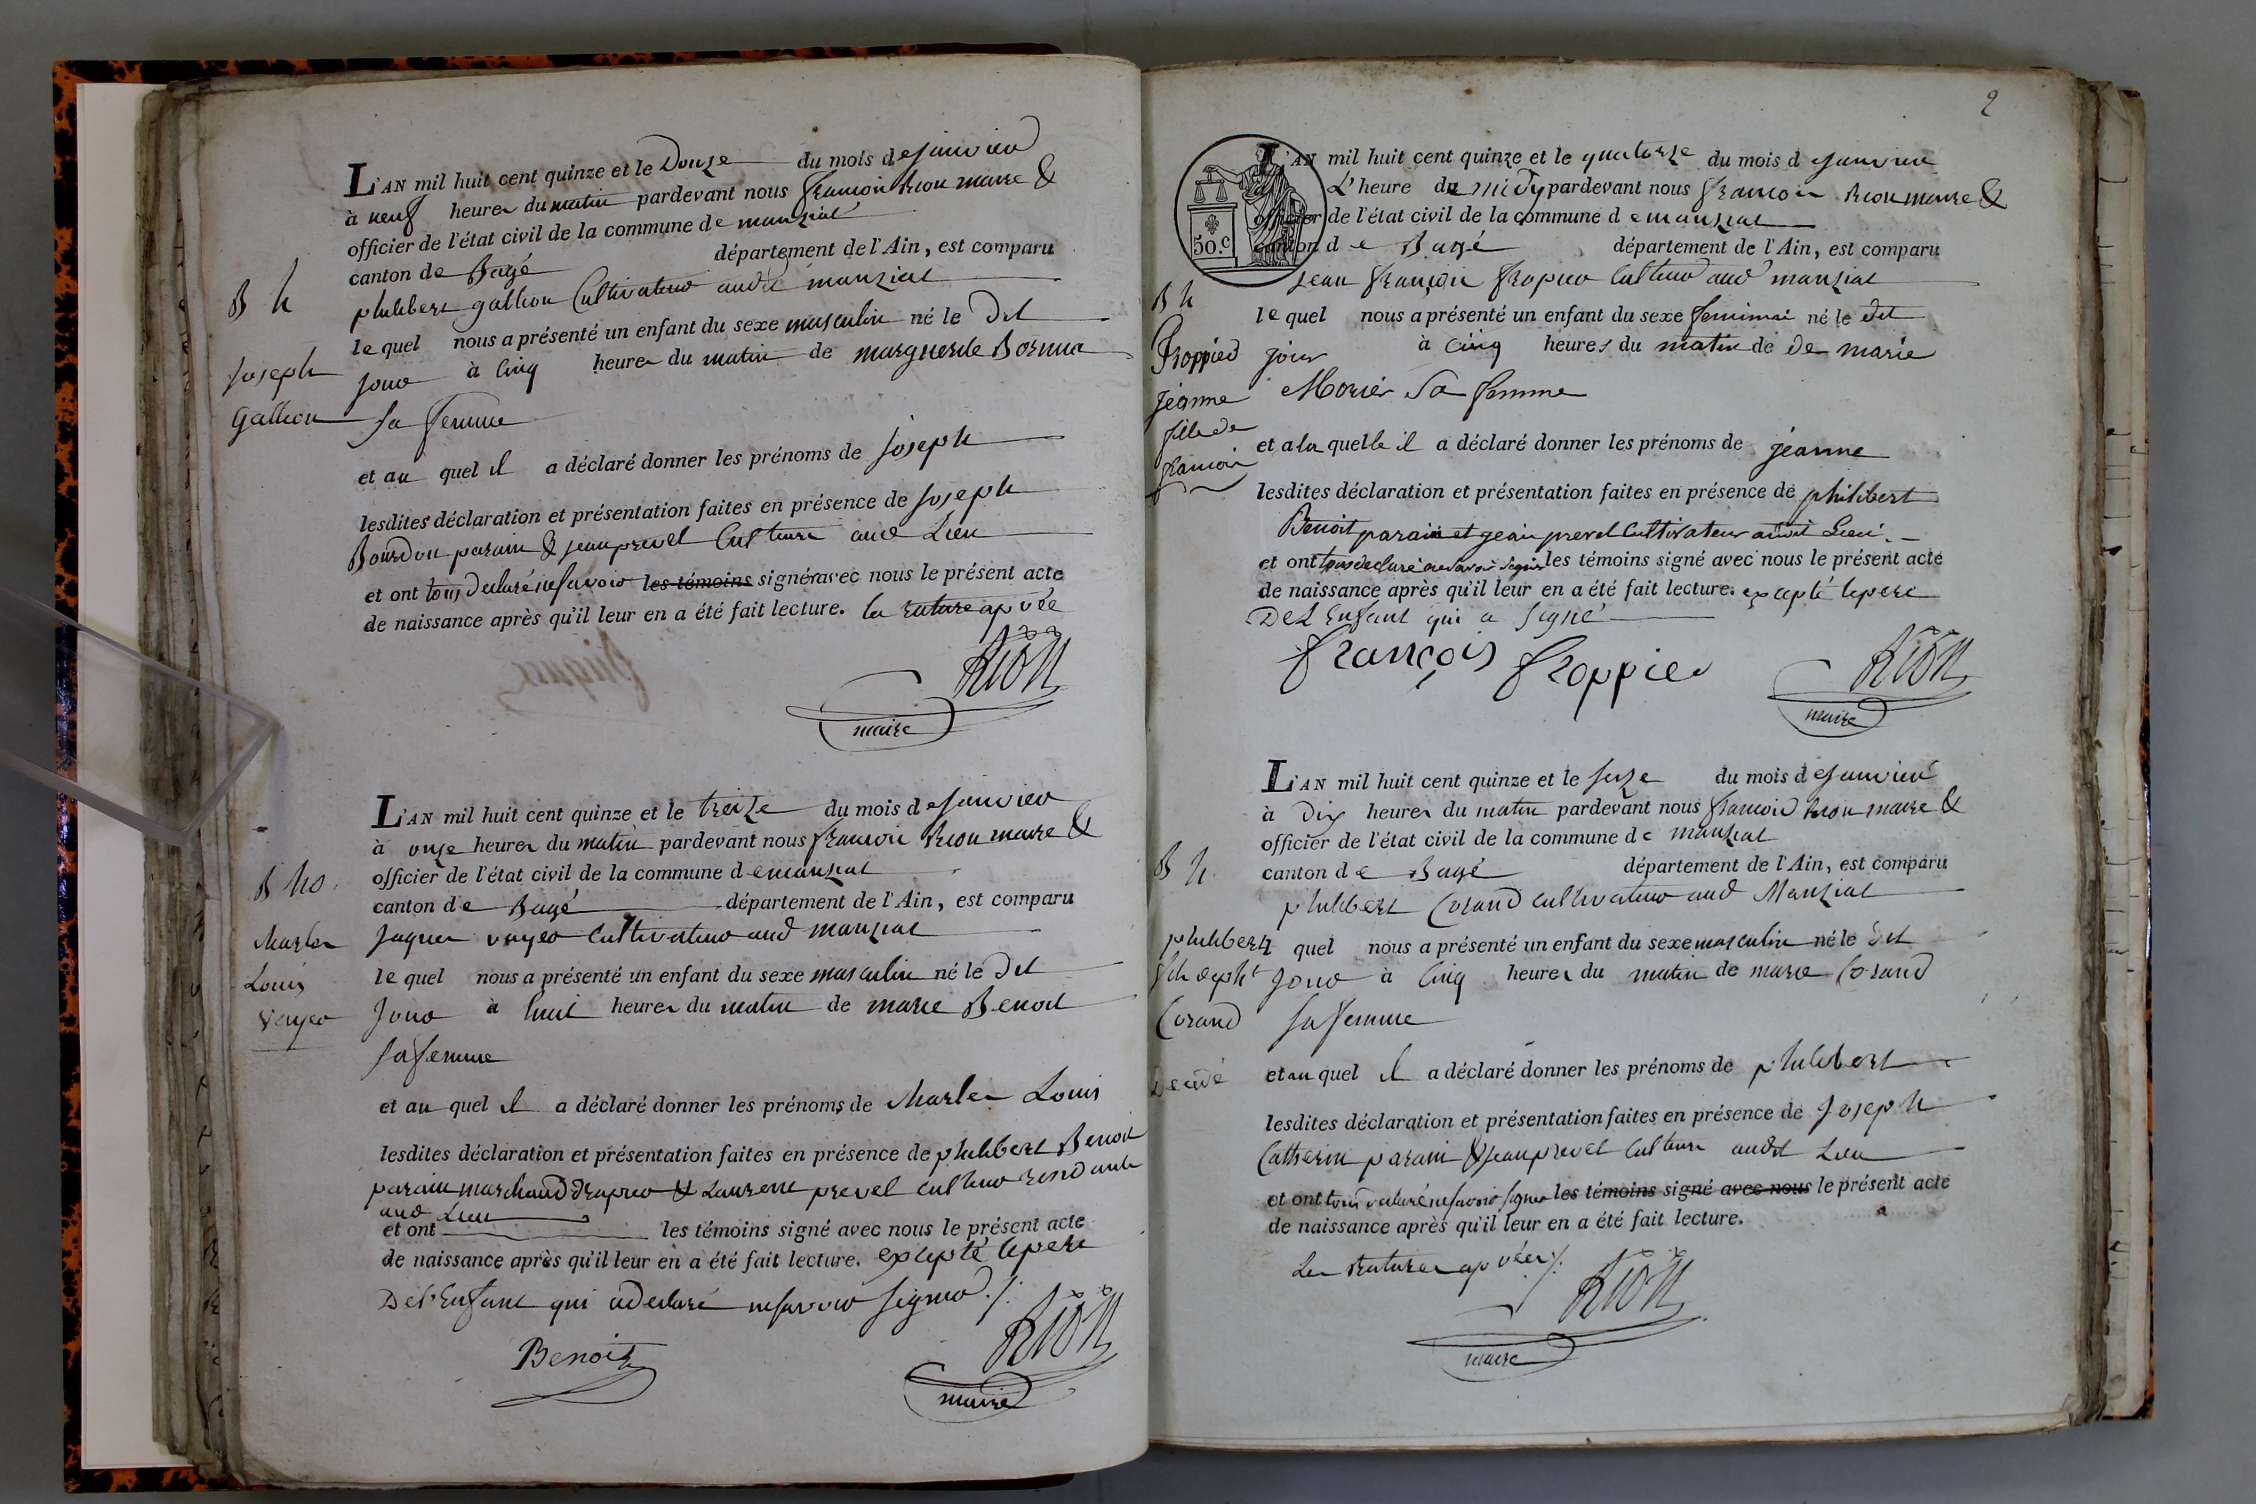 L'AN mil huit cent quinze et le Douze du mois de Janvier
à neuf heures du matin pardevant nous françois Rion maire &
officier de l'état civil de la commune de manziat
canton de Bagé département de l'Ain, est comparu
philibert gallion Cultivateur audit manziat
lequel nous a présenté un enfant du sexe masculin né le dit
jour à Cinq heures du matin de marguerite
sa femme
et au quel il a déclaré donner les prénoms de Joseph
lesdites déclaration et présentation faites en présence de Joseph
Bourdon parain & jean prevel Culteurs aud Lieu
et ont tous declaré ne savoir les témoins signer avec nous le présent acte
de naissance après qu'il leur en a été fait lecture. la rature apvée
Rion
maire
B h
Joseph
Gallion
L'AN mil huit cent quinze et le treize du mois de Janvier
à onze heures du matin pardevant nous francois Rion maire &
officier de l'état civil de la commune de manziat
canton de Bagé département de l'Ain, est comparu
Jaques voyer Cultivateur aud manziat
lequel nous a présenté un enfant du sexe masculin né le dit
Jour à huit heures du matin de marie Benoit
sa femme
et au quel il a déclaré donner les prénoms de Charles Louis
lesdites déclaration et présentation faites en présence de philibert Benoit
parain marchand drapier & Laurent prevel culteur
aud Lieu
et ont les témoins signé avec nous le présent acte
de naissance après qu'il leur en a été fait lecture. excepté lepere
De l'Enfant qui a declaré ne savoir signer ./.
Benoit
Rion
maire
Charles
Louis
voyer
2
L'AN mil huit cent quinze et le quatorze du mois de Janvier
L'heure du midy pardevant nous francois Rion maire &
officier de l'état civil de la commune de manziat
50.c
canton de Bagé département de l'Ain, est comparu
Jean françois froppier Culteur aud manziat
lequel nous a présenté un enfant du sexe feminin né le dit
jour à Cinq heures du matin de de marie
Morier Sa femme
et a la quelle il a déclaré donner les prénoms de jéanne
lesdites déclaration et présentation faites en présence de philibert
Benoit parain et jean prevel Cultivateur audit Lieu. -
et ont tous declaré ne savoir signer les témoins signé avec nous le présent acte
de naissance après qu'il leur en a été fait lecture. excepté lepere
De L'Enfant qui a signé
françois froppier
Rion
maire
B h
froppied
jéanne
fille de
francois
L'AN mil huit cent quinze et le seize du mois de Janvier
à Dix heures du matin pardevant nous francois Rion maire &
officier de l'état civil de la commune de manziat
canton de Bagé département de l'Ain, est comparu
philibert Corand cultivateur aud Manziat
quel nous a présenté un enfant du sexe masculin né le dit
Jour à Cinq heures du matin de marie Corand
sa femme
et au quel il a déclaré donner les prénoms de philibert
lesdites déclaration et présentation faites en présence de Joseph
Catherin parain & Jean prevel Culteurs audit Lieu
et ont tous declaré ne savoir signer les témoins signé avec nous le présent acte
de naissance après qu'il leur en a été fait lecture.
Les Ratures apvées ./.
Rion
maire
B h
philibert
Corand
Decidé